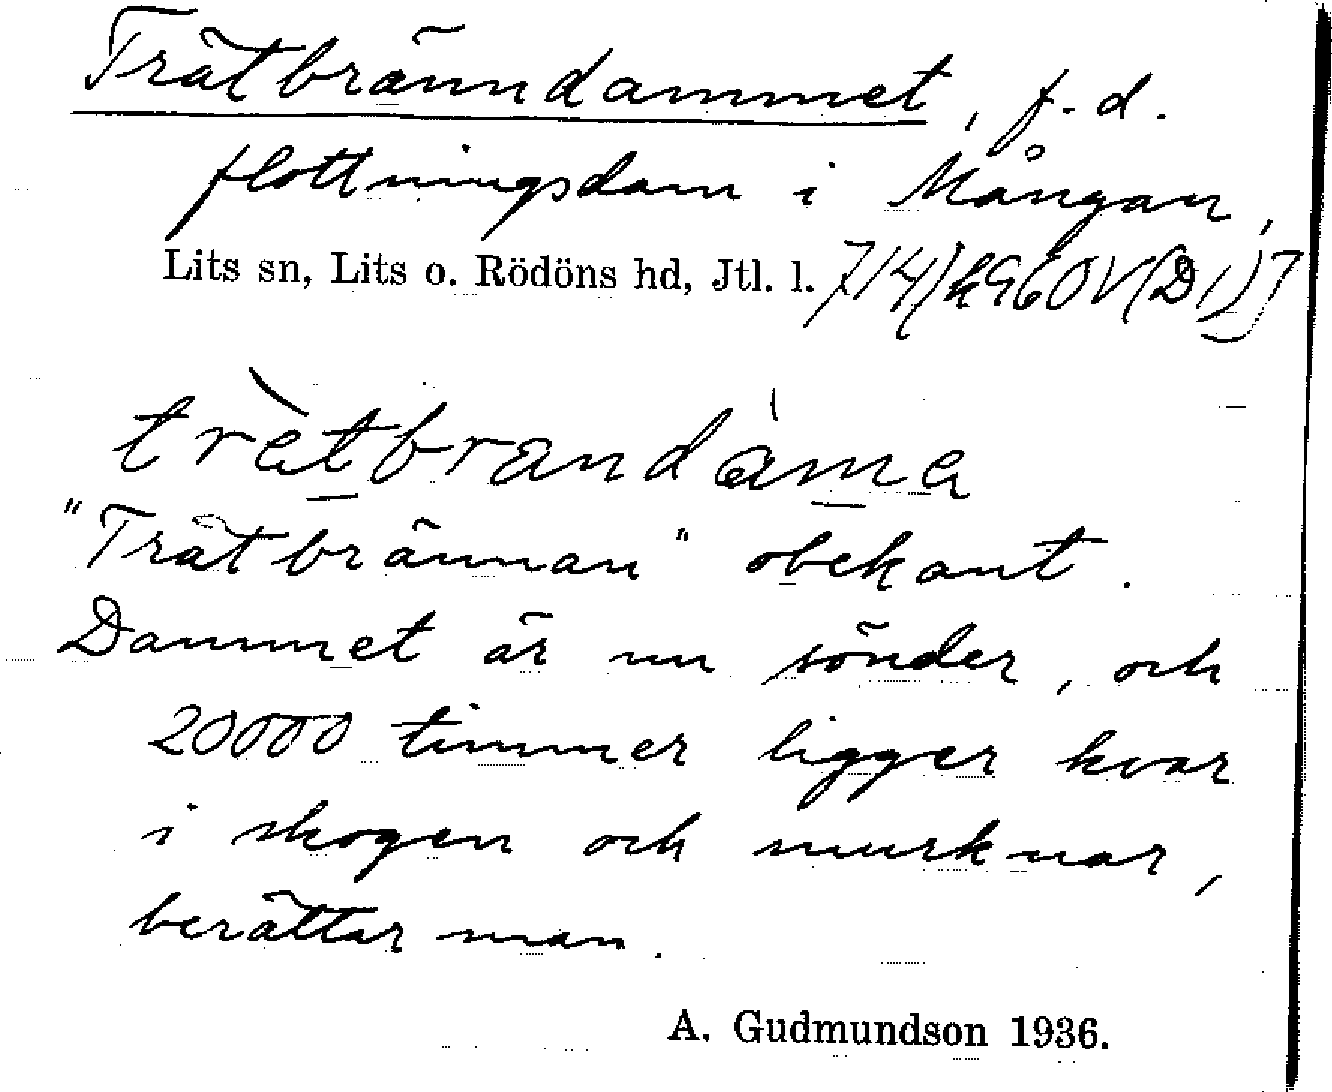 Trätbränndammet, f.d.
flottningsdam i Mångan,
Lits sn, Lits o. Rödöns hd, Jtl. l.
trɛ̀tbrandàma
"Trätbrännan" obekant.
Dammet är nu sönder, och
20000 timmer ligger kvar
i skogen och murknar,
berättar man.
A. Gudmundson 1936.